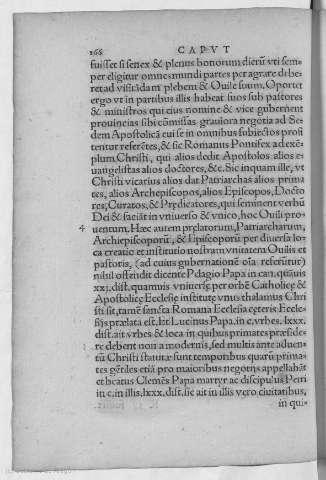 268 CAPVT
fuisset si senex & plenus honorum dierũ vti sem-
per eligitur omnes mundi partes peragrare debe-
ret ad visitãdam plebem & Ouile suum. Oportet
ergo vt in partibus illis habeat suos sub pastores
& ministros qui eius nomine & vice gubernent
prouincias sibi cõmissas grauiora negotia ad Se-
dem Apostolicã cui se in omnibus subiectos profi
tentur referẽtes, & sic Romanus Pontifex ad exẽ-
plum Christi, qui alios dedit Apostolos alios e-
uangelistas alios doctores, &c. Sic inquam ille, vt
Christi vicarius alios dat Patriarchas alios prima
tes, alios Archepiscopos, alios Episcopos, Docto
res, Curatos, & Prædicatores, qui seminent verbũ
Dei & faciãt in vniuerso & vnico, hoc Ouili pro-
4 uentum. Hæc autem prælatorum, Patriarcharum,
Archiepiscoporũ, & Episcoporũ per diuersa lo-
ca creatio et institutio nostram vnitatem Ouilis et
pastoris, (ad cuius gubernationẽ oĩa referũtur)
nihil offendit dicente Pelagio Papa in can. quãuis
xxj. dist. quamuis vniuersę per orbẽ Catholicę &
Apostolicę Ecclesię institutę vnus thalamus Chri
sti sit, tamẽ sancta Romana Ecclesia cęteris Eccle-
sijs prælata est, & Lucinus Papa. in c. vrbes. lxxx.
dist. ait vrbes & loca in quibus primates præside-
re debent non a modernis, sed multis ante aduen-
tũ Christi statuta sunt temporibus quarũ prima-
tes gẽtiles etiã pro maioribus negotijs appellabãt
et beatus Clemẽs Papa martyr ac discipulus Petri
in c. in illis. lxxx. dist. sic ait in illis vero ciuitatibus,
in qui-